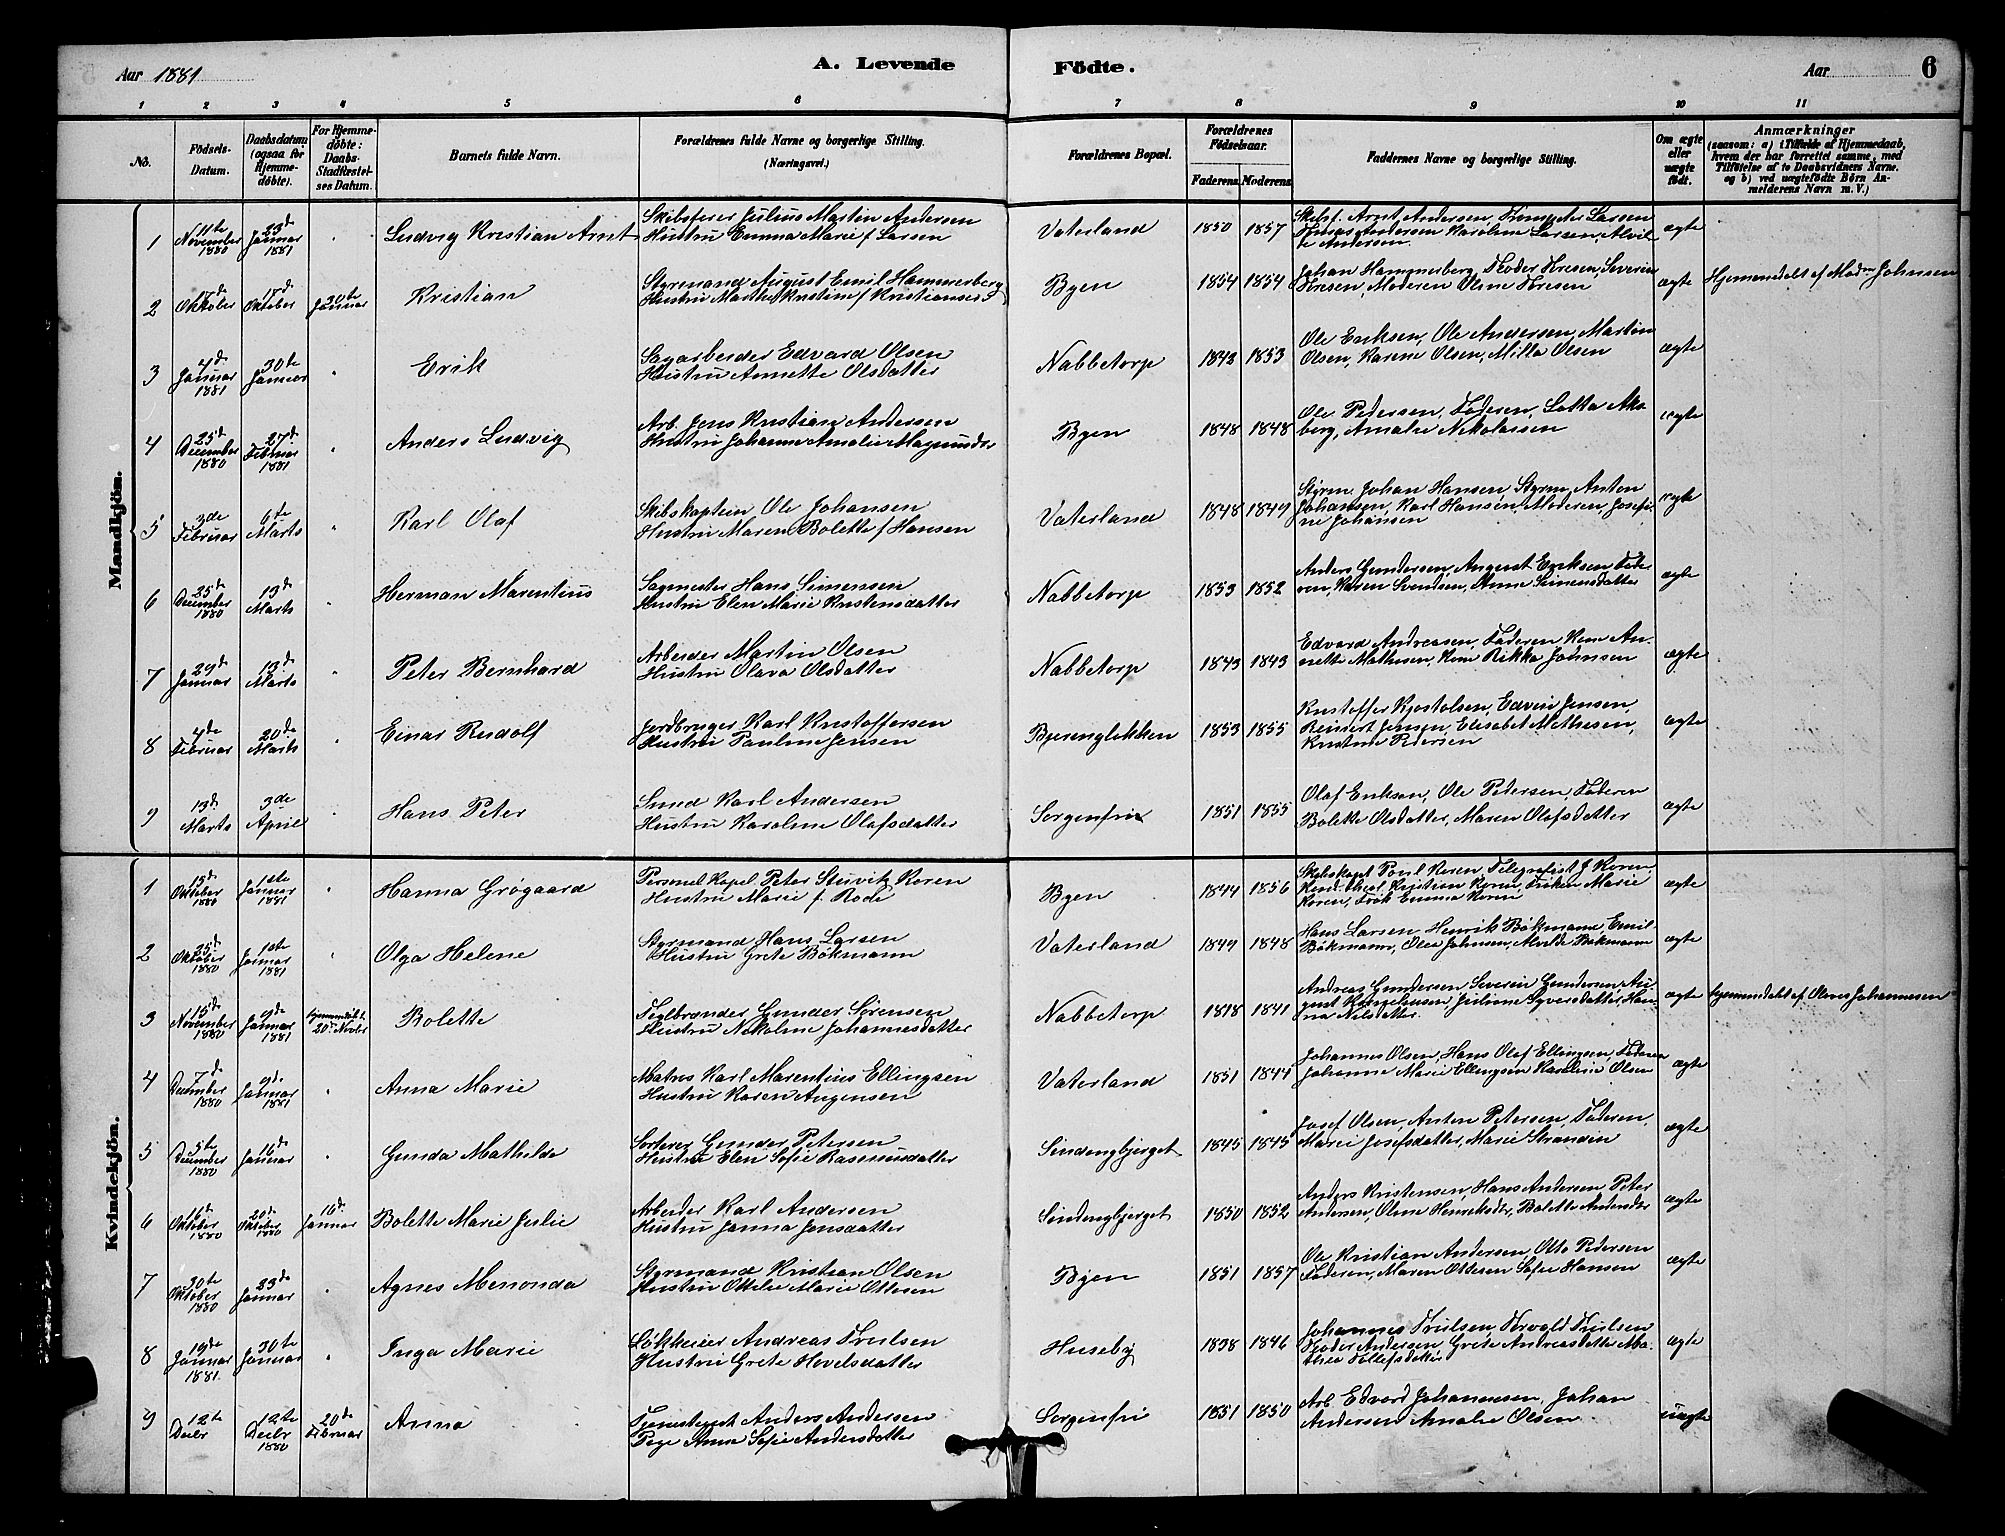 Aar 1881 A. Levende Födte. Aar 6
1 2 3 4 5 6 7 8 9 10 11
No. Födsels-Datum. Daabsdatum (ogsaa for Hjemmedöbte). For Hjemmedöbte: Daabs-Stadfæstelses Datum. Barnets fulde Navn. Forældrenes fulde Navne og borgerlige Stilling. (Næringsvei.) Forældrenes Bopæl. Forældrenes Födselsaar. Faderens Moderens Faddernes Navne og borgerlige Stilling. Om ægte eller uægte födt. Anmærkninger (saasom: a) i Tilfælde af Hjemmedaab, hvem der har forrettet samme, med Tilföielse af to Daabsvidners Navne. og b) ved uægtefödte Börn Anmelderens Navn m. V.)
Mandkjön.
1 11te November 1880 23de Januar 1881 " Ludvig Kristian Arnt Skibsfører Julius Martin Andersen
Hustru Emma Marie f Larsen Vaterland 1850 1857 Skibsf. Arnt Andersen, Larsen
Andersen Karoline Larsen, Alvilde Andersen ægte
2 17de Oktober 17de Oktober 30te Januar Kristian Styrmand August Emil Hammerberg
Hustru Marthe Kristine f Kristiansen Byen 1854 1854 Johan Hammerberg, Teodor Toresen, Severin
Toresen, Moderen Oline Toresen ægte Hjemmedøbt af Madm Johnsen
3 4de Januar 1881 30te Januar " Erik Sagarbeider Edvard Olsen
Hustru Annette Olsdatter Nabbetorp 1843 1853 Ole Eriksen, Ole Andersen, Martin
Olsen, Karine Olsen, Milla Olsen ægte
4 25de December 1880 27de Februar 1881 " Anders Ludvig Arb. Jens Kristian Andersen
Hustru Johanne Amalie Magnusdtr Byen 1848 1848 Ole Pedersen, Faderen, Lotta Aaberg, Amalie Nikolaisen ægte
5 3de Februar 6te Marts " Karl Olaf Skibskaptein Ole Johansen
Hustru Maren Bolette f Hansen Vaterland 1848 1849 Styrm. Johan Hansen, Styrm. Anton
Johansen, Karl Hansen, Moderen, Josefine Johansen ægte
6 25de December 1880 13de Marts " Herman Marentius Sagmester Hans Simensen
Hustru Elen Marie Kristensdatter Nabbetorp 1853 1852 Anders Gundersen, August Eriksen Faderen, Karen Svendsen, Anne Simensdatter ægte
7 29de Januar 13de Marts " Peter Bernhard Arbeider Martin Olsen
Hustru Olava Olsdatter Nabbetorp 1843 1843 Edvard Andreasen, Faderen, Kone Anette Mathisen, Kone Rikka Johnsen ægte
8 4de Februar 20de Marts " Einar Rudolf Jordbruger Karl Kristoffersen
Hustru Pauline Jensen Bjerengløkken 1853 1855 Kristoffer Kjostolsen, Edvin Jensen
Reinert Jensen, Elisabet Mathisen,
Kristine Pedersen ægte
9 13de Marts 3de April " Hans Peter Smed Karl Andersen
Hustru Karoline Olafsdatter Sorgenfri 1851 1855 Olaf Eriksen, Ole Pedersen, Faderen
Bolette Olsdatter, Maren Olafsdatter ægte
Kvindekjön.
1 15de Oktober 1880 1ste Januar 1881 " Hanna Grøgaard Personel Kapel. Peter Stuvitz Koren
Hustru Marie f. Rode Byen 1844 1856 Skibskapt Poul Koren, Telegrafist J Koren,
Kand. theol Kristian Koren, Frøken Marie
Koren, Frøk Emma Koren ægte
2 25de Oktober 1880 1ste Januar 1881 " Olga Helene Styrmand Hans Larsen
Hustru Grete Bøkmann Vaterland 1847 1848 Hans Larsen, Henrik Bøkmann, Emil
Bøkmann, Olea Johnsen, Alvilde Bøkmann ægte
3 15de November 1880 9de Januar 1881 Hjemmedøbt 20de Novbr Bolette Teglbrænder Gunder Sørensen
Hustru Nikoline Johannesdatter Nabbetorp 1818 1841 Andreas Gundersen Severin Gundersen August Kongehusen, Juliane Syversdatter, Hanna Nilsdatter ægte Hjemmedøbt af Olines Johannesen
4 7de December 1880 9de Januar 1881 " Anna Marie Matros Karl Marentius Ellingsen
Hustru Karen Augensen Vaterland 1851 1844 Johannes Olsen, Hans Olaf Ellingsen, Faderen
Johanne Marie Ellingsen Karoline Olsen ægte
5 5te December 1880 16de Januar " Gunda Mathilde Sorterer Gunder Petersen
Hustru Elen Sofie Rasmusdatter Sindengbjerget 1845 1845 Josef Olsen, Anton Petersen, Faderen,
Marie Josefsdatter, Marie Stranden ægte
6 16de Oktober 1880 20de Oktober 1880 16de Januar Bolette Marie Julie Arbeider Karl Andersen
Hustru Janna Jensdatter Sindengbjerget 1850 1852 Anders Kristensen, Hans Andersen Peter
Andersen, Oline Henriksdtr, Bolette Andersdtr ægte
7 30te Oktober 1880 23de Januar " Agnes Menonda Styrmand Kristian Olsen
Hustru Ottelie Marie Ottesen Byen 1851 1857 Ole Kristian Andersen, Otto Pedersen
Faderen, Maren Ottesen Sofie Hansen ægte
8 19de Januar 1881. 30te Januar " Inga Marie Løkkeeier Andreas Trulsen
Hustru Grete Hovelsdatter Huseby 1838 1846 Johannes Trulsen, Torvald Trulsen
Teodor Andersen, Grete Andreasdatter Mathea Tollefsdatter ægte
9 12te Decbr 12te Decbr 1880 20de Februar Anna Tjenestegut Anders Andersen
Pige Anna Sofie Andersdatter Sorgenfri 1851 1850 Arb Edvard Johannesen, Johan
Andersen Amalie Olsen uægte